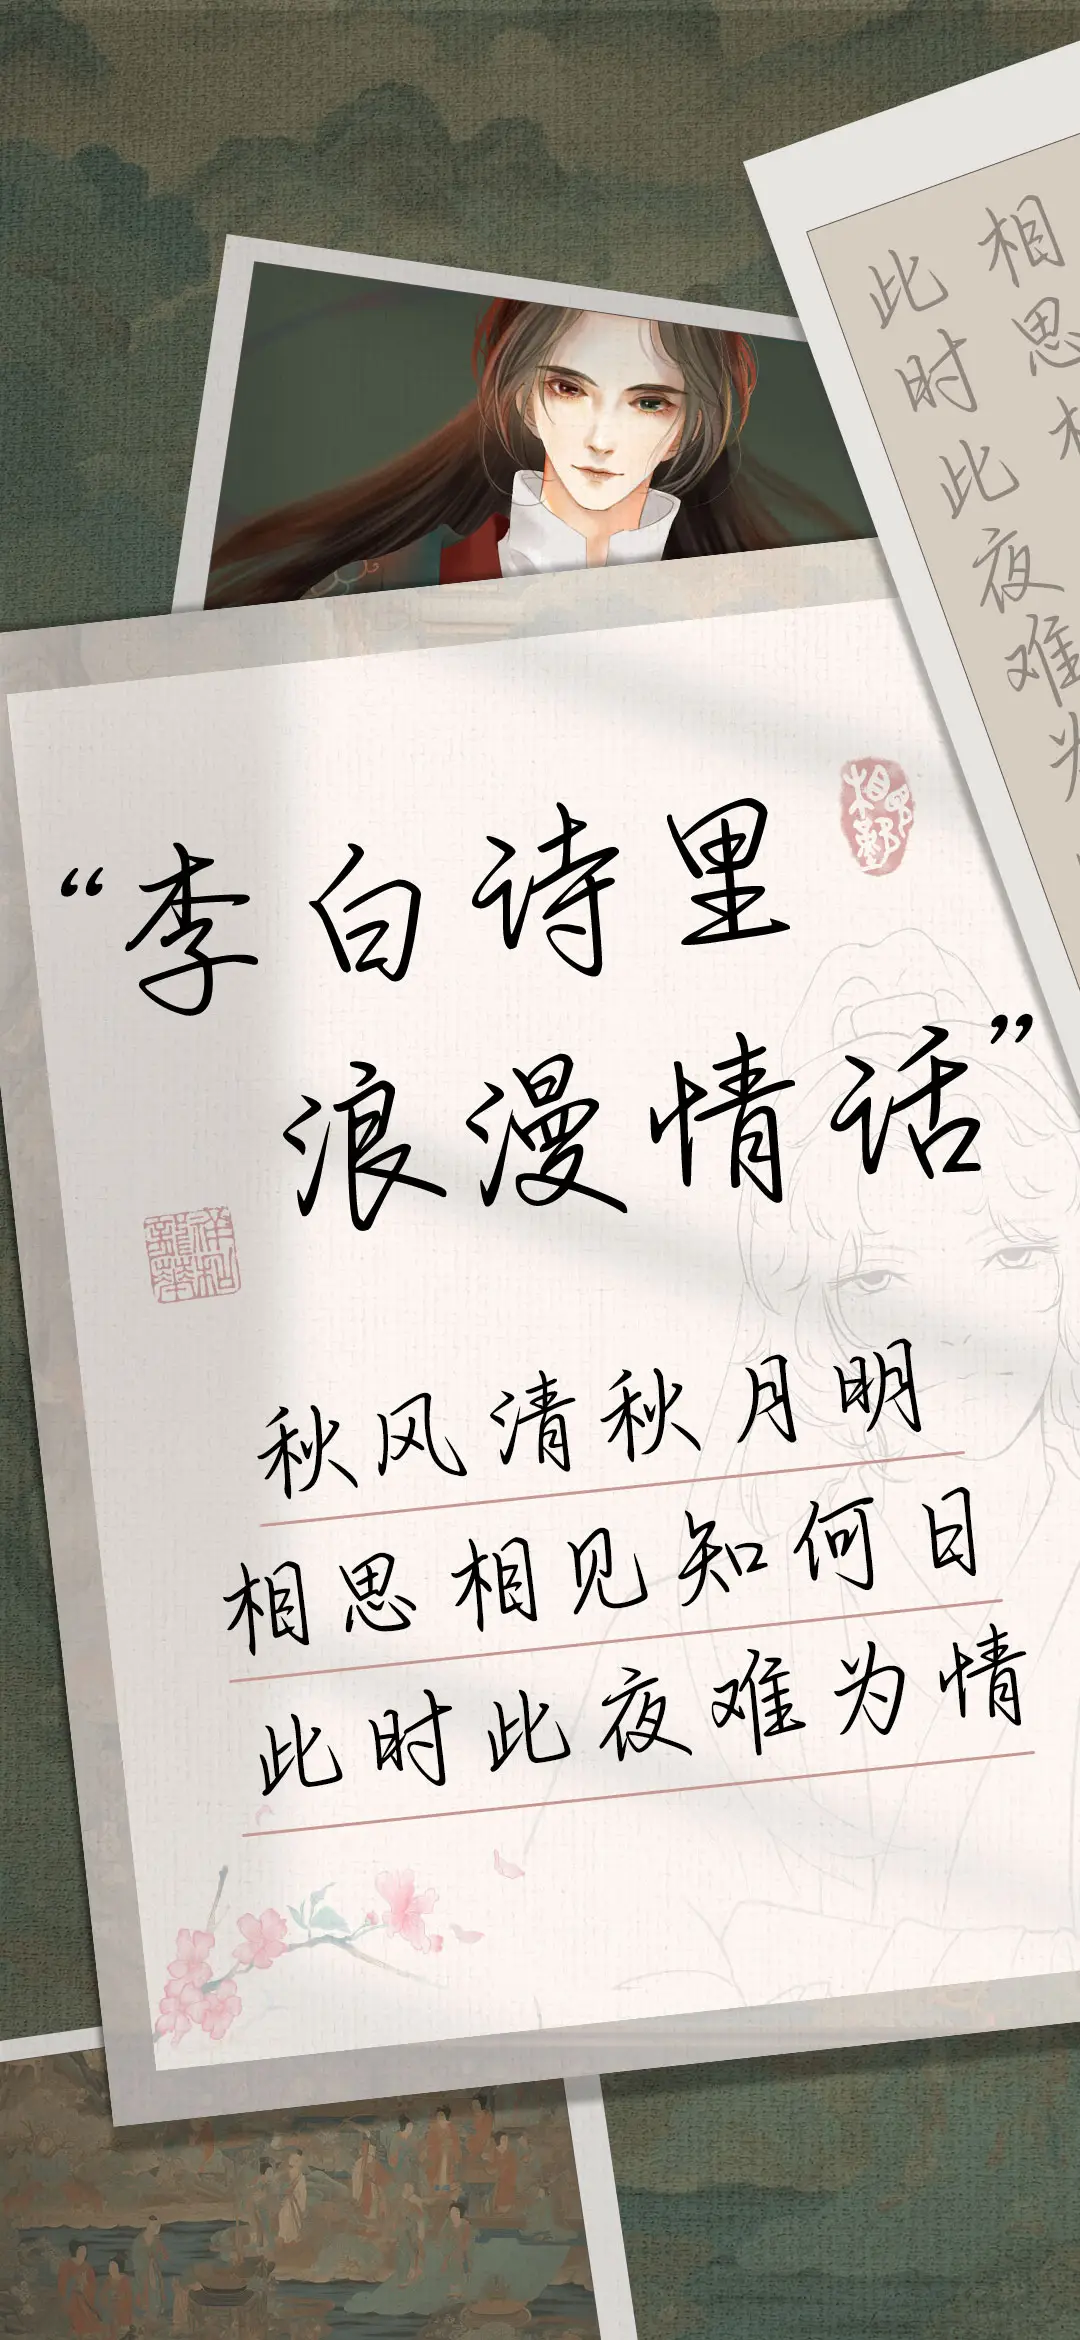 “李白诗里
浪漫情话”
秋风清秋月明
相思相见知何日
此时此夜难为情
相思相
此时此夜难为